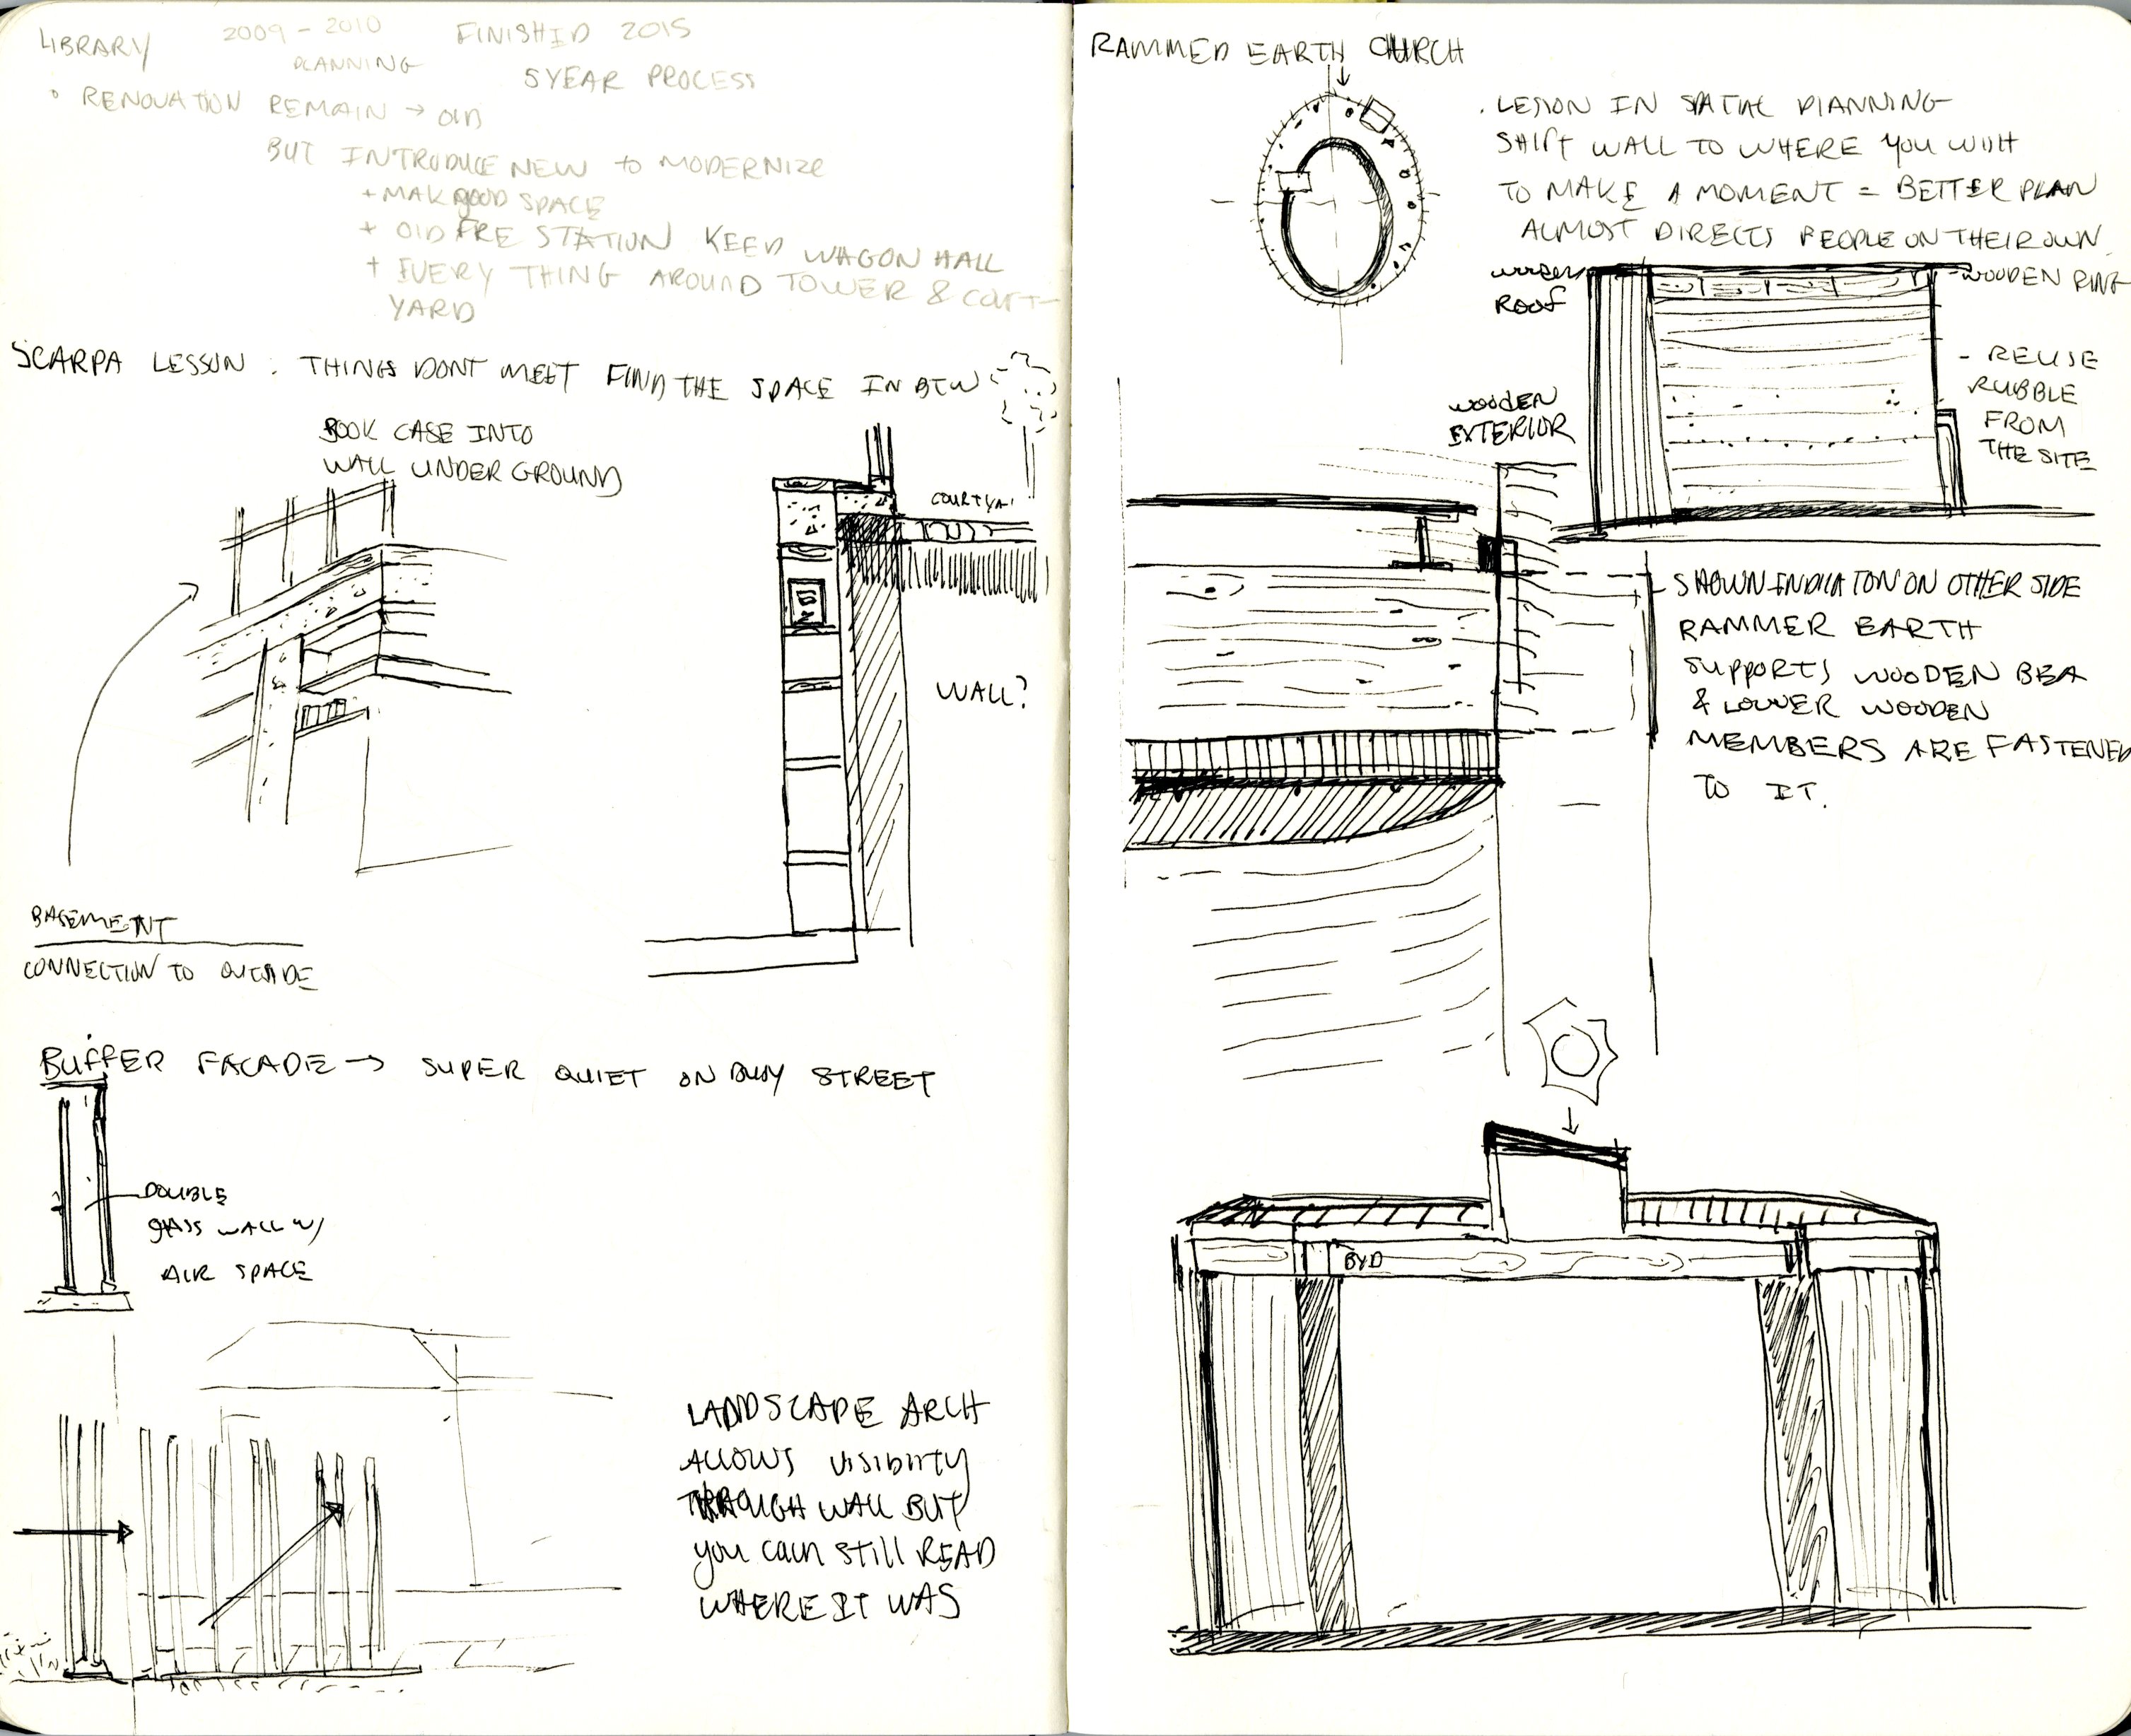 LIBRARY 2009 - 2010 FINISHID 2015
PLANNING 5YEAR PROCESS
° RENOVATION REMAIN → OLD
BUT INTRODUCE NEW to MODERNIZE
+ MAK GOOD SPACE
+ OLD FIRE STATION KEEP WAGON HALL
+ EVERY THING AROUND TOWER & COURT-
YARD
SCARPA LESSON : THINGS DONT MEET FIND THE SPACE IN BTW
BOOK CASE INTO
WALL UNDER GROUND
COURTYA
WALL?
BASEMENT
CONNECTION TO OUTSIDE
BUFFER FACADE → SUPER QUIET ON BUSY STREET
DOUBLE
GLASS WALL W/
AIR SPACE
LANDSCAPE ARCH
ALLOWS VISIBILITY
THROUGH WALL BUT
you can still READ
WHERE IT WAS
RAMMED EARTH CHURCH
. LESSON IN SPATIAL PLANNING
SHIFT WALL TO WHERE you WISH
TO MAKE A MOMENT = BETTER PLAN
ALMOST DIRECTS PEOPLE ON THEIR OWN.
WOODEN
ROOF
- WOODEN RING
- REUSE
RUBBLE
FROM
THE SITE
WOODEN
EXTERIOR
- SHOWN INDICATON ON OTHER SIDE
RAMMER EARTH
SUPPORTS WOODEN BEA
& LOWER WOODEN
MEMBERS ARE FASTENED
TO IT.
BYD